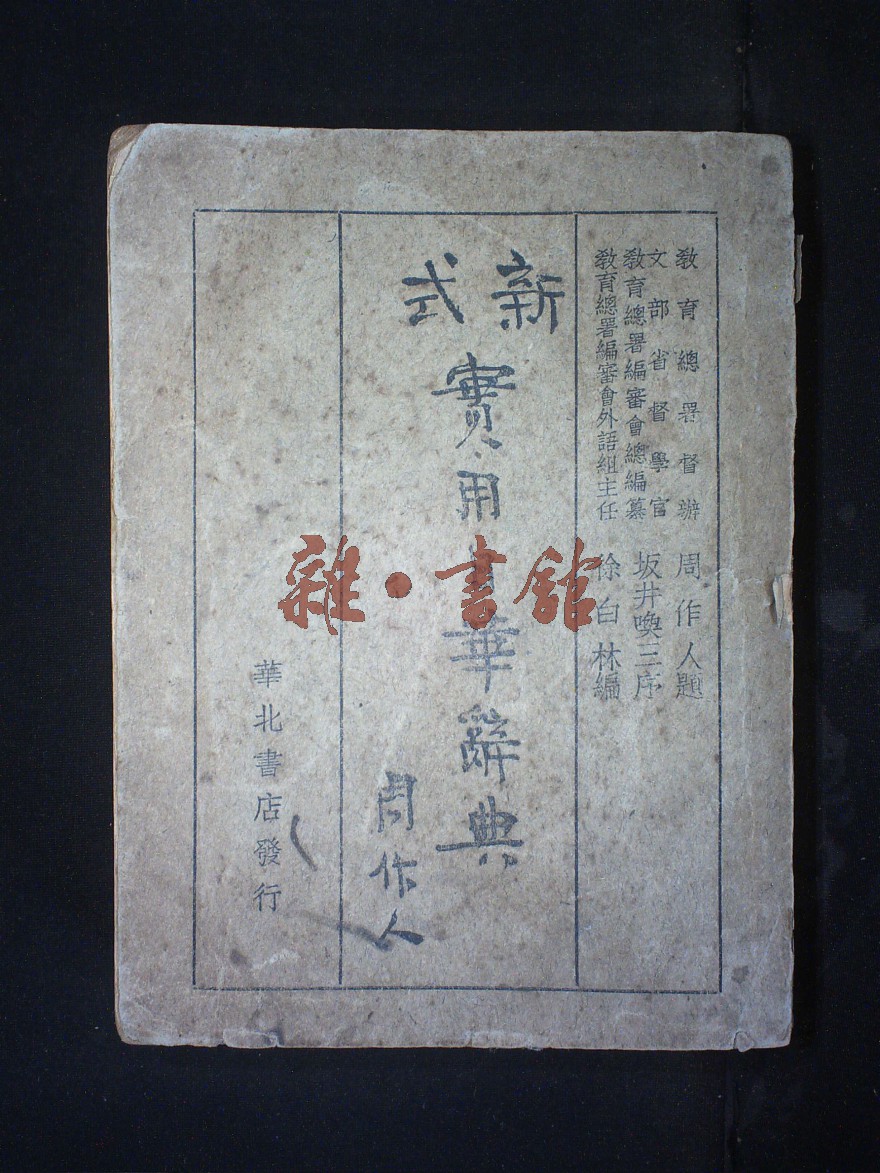 教育總署督辦 周作人題
文部省督學官 坂井喚三序
教育總署編審會總編纂
教育總署編審會外語組主任 徐白林編
新式
實用日華辭典
周作人
華北書店發行
雜·書館